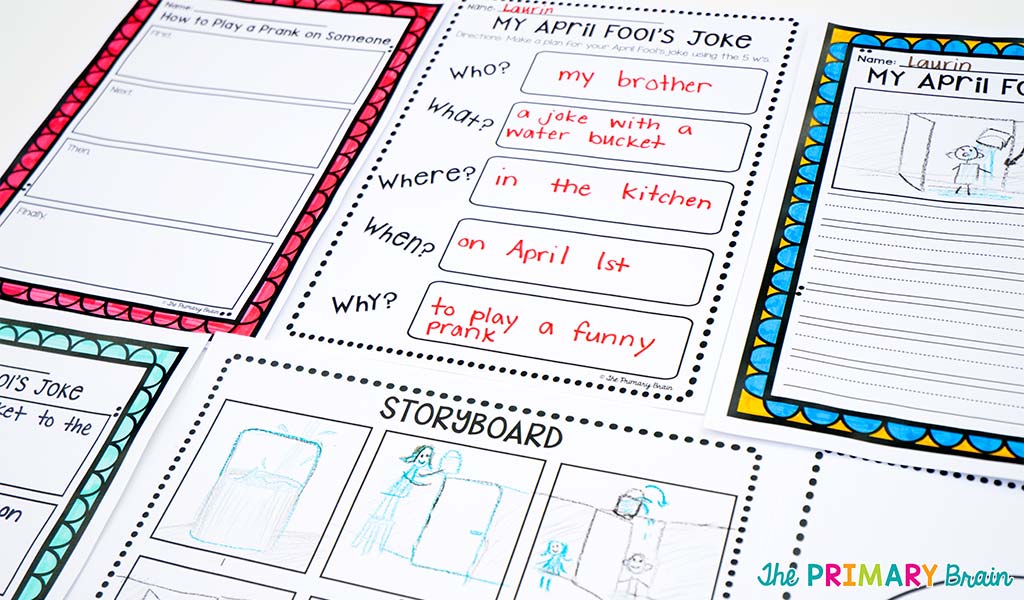 Name:
How to Play a Prank on Someone
First,
Next,
Then,
Finally,
© The Primary Brain
Name: Laurin
MY APRIL FOOL'S JOKE
Directions: Make a plan for your April Fool's joke using the 5 w's.
WHO?
my brother
What?
a joke with a
water bucket
WHERE?
in the kitchen
WHEN?
on April 1st
WHY?
to play a funny
prank
© The Primary Brain
Name: Laurin
MY APRIL FO
OOL'S JOKE
ket to the
on
STORYBOARD
The PRIMARY Brain